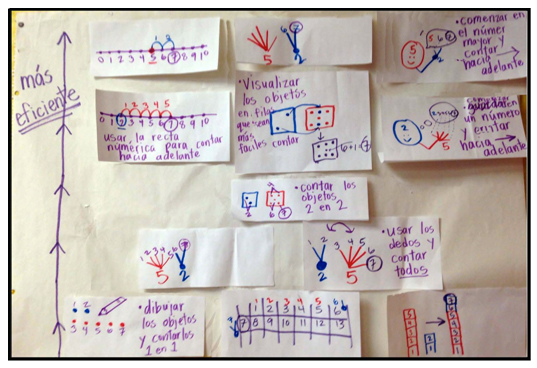 más
eficiente
1 2
0 1 2 3 4 5 6 7 8 9 10
5
6 7
2
5 6 7
5
2
• comenzar en
el númer
mayor y
contar
hacia
adelante
1 2 3 4 5
0 1 2 3 4 5 6 7 8 9 10
usar la recta
númerica para contar
hacia adelante
• Visualizar
los objetos
en fila
que sean
más
fáciles contar
6+1=7
2
5
en
un número
y contar
hacia
adelante
2
4
6 7
• contar los
objetos
2 en 2
1 2 3 4 5
6 7
5
2
1 2
3 4 5
6
7
2
5
• usar los
dedos y
contar
todos
1 2
3 4 5 6 7
• dibujar
los objetos
y contarlos
1 en 1
1 2 3 4 5 6
7 8 9 10 11 12 13